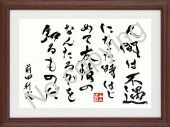 人間は不遇
になった時はじ
めて友情の
なんたるかを
知るものだ
前田利家